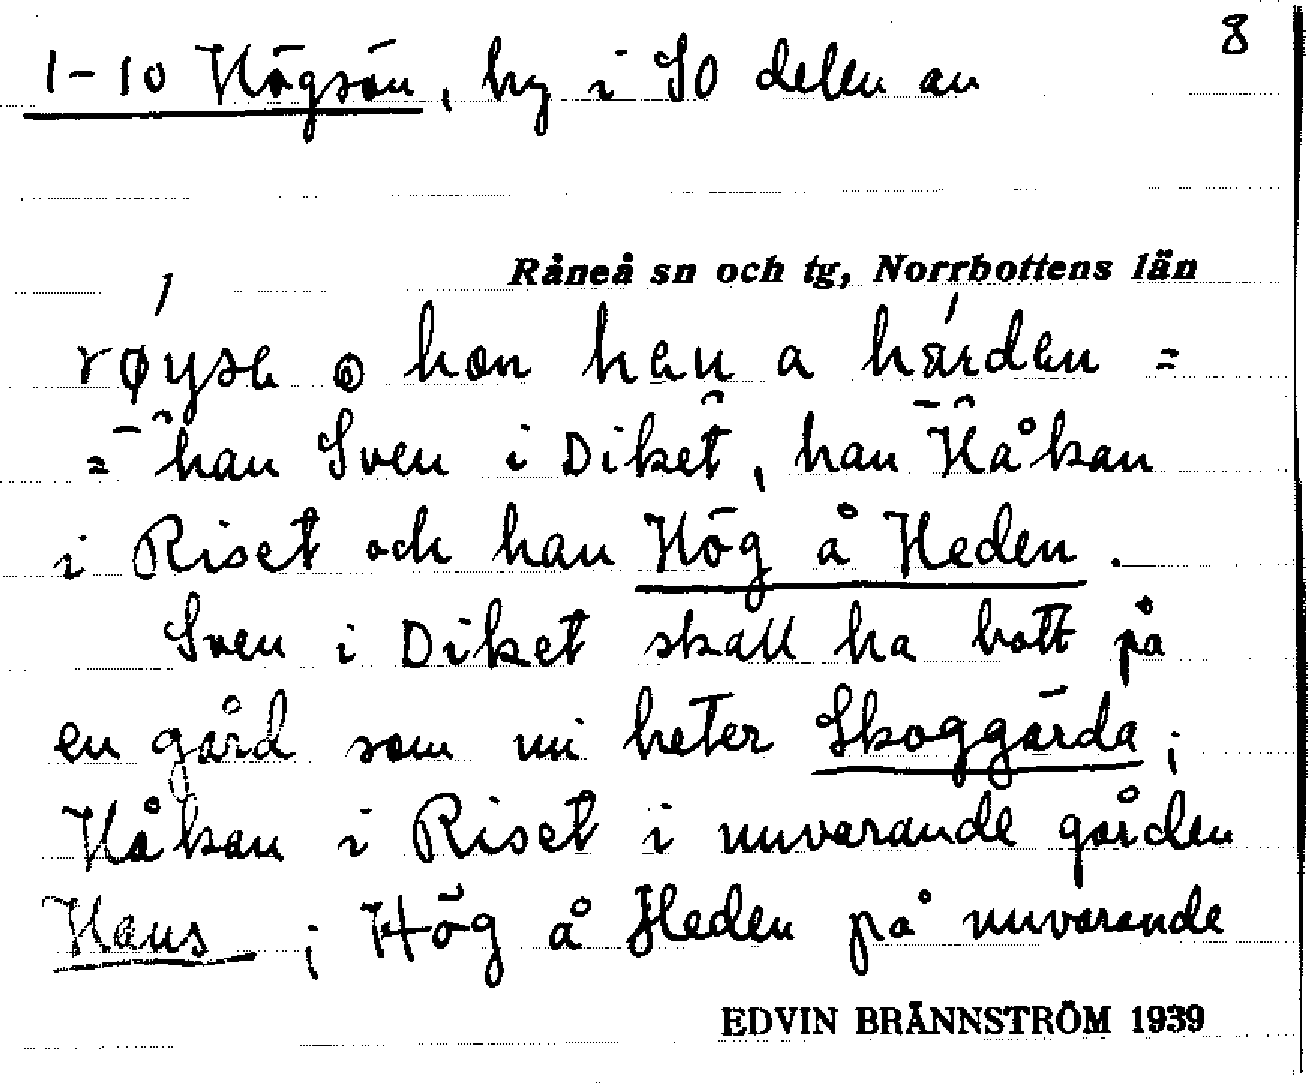 8
1-10 Högsön, by i SO delen av
Råneå sn och tg, Norrbottens län
røyse o hön hau a hárden =
= han Sven i Diket, han Håkan
i Riset och han Hög å Heden.
Sven i Diket skall ha bott på
en gård som nu heter Skoggärda;
Håkan i Riset i nuvarande gården
Hans; Hög å Heden på nuvarande
EDVIN BRÄNNSTRÖM 1939